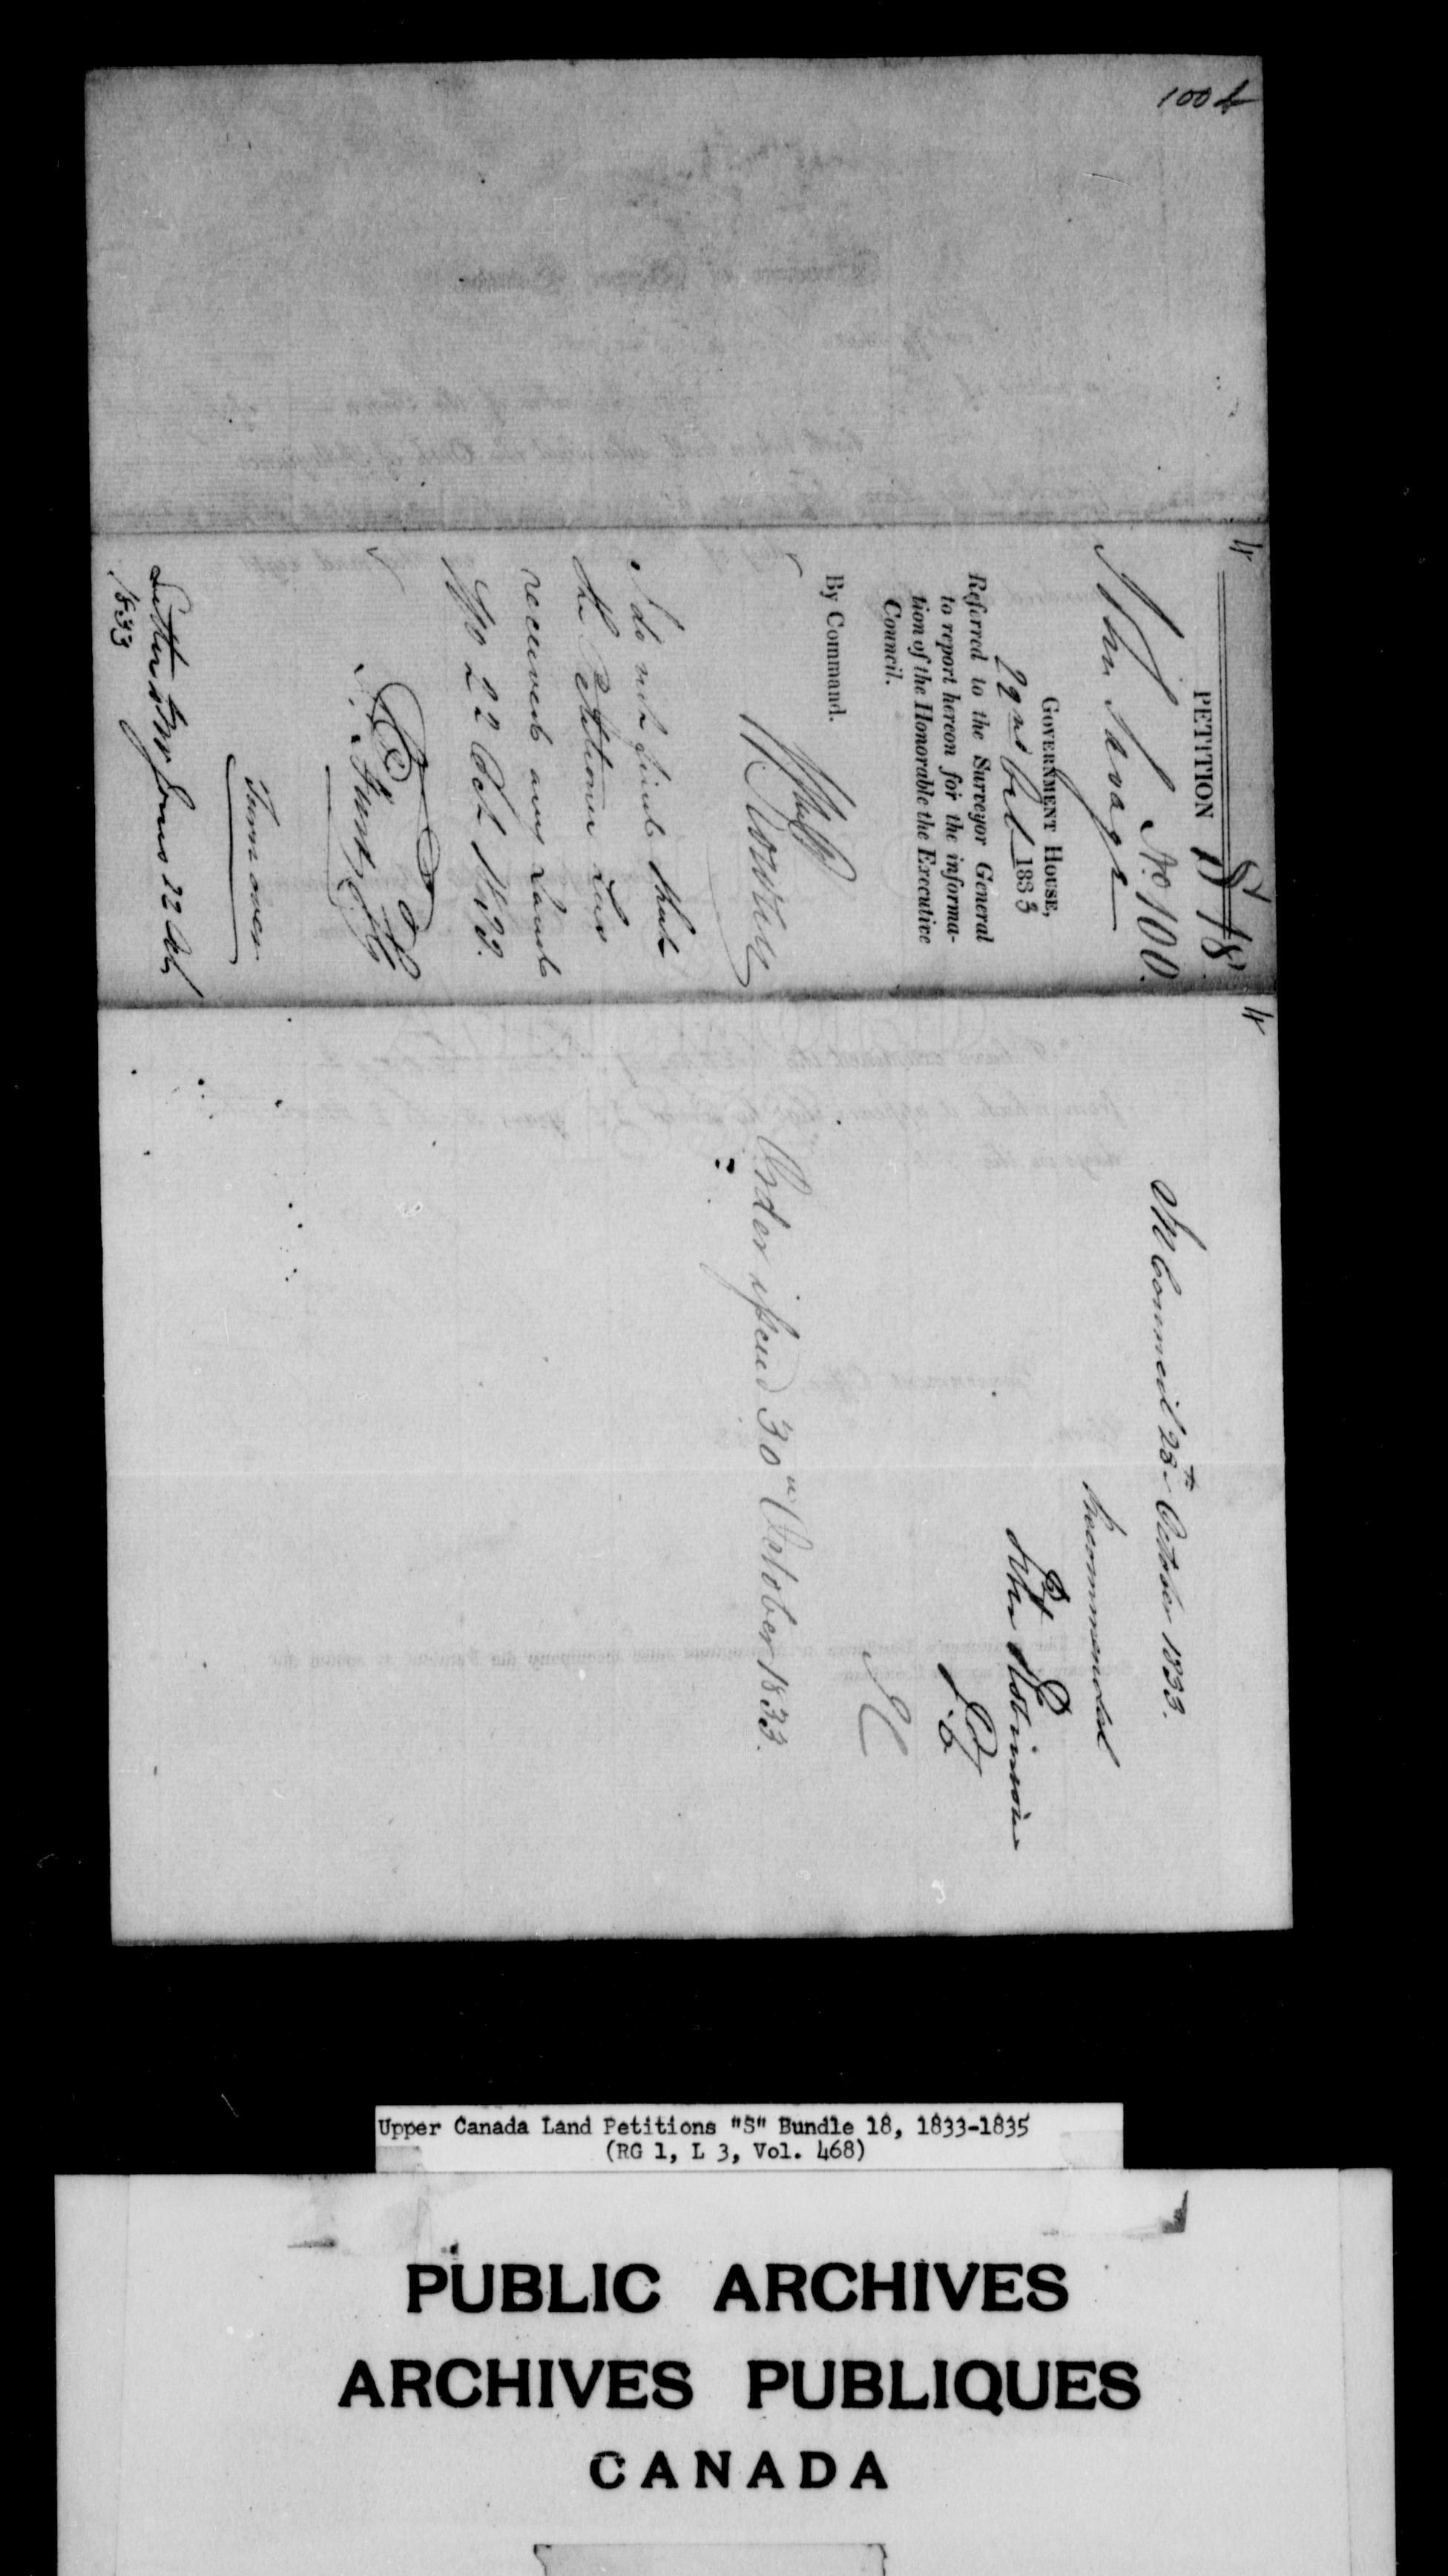 100 d
PETITION S 18
No 100.
John Savage
GOVERNMENT HOUSE,
22nd Oct 1833
Referred to the Surveyor General
to report hereon for the informa-
tion of the Honorable the Executive
Council.
By Command.
Wm Rowan
I do not find that
the Petitioner has
received any Land
SGO 22 Oct 1833.
Turn over
Letter to Mr Jones 22 Oct
1833
In Council 25th October 1833.
Recommended
Peter Robinson
P.C.
JC
Order issued 30th October 1833.
Upper Canada Land Petitions "S" Bundle 18, 1833-1835
(RG 1, L 3, Vol. 468)
PUBLIC ARCHIVES
ARCHIVES PUBLIQUES
CANADA